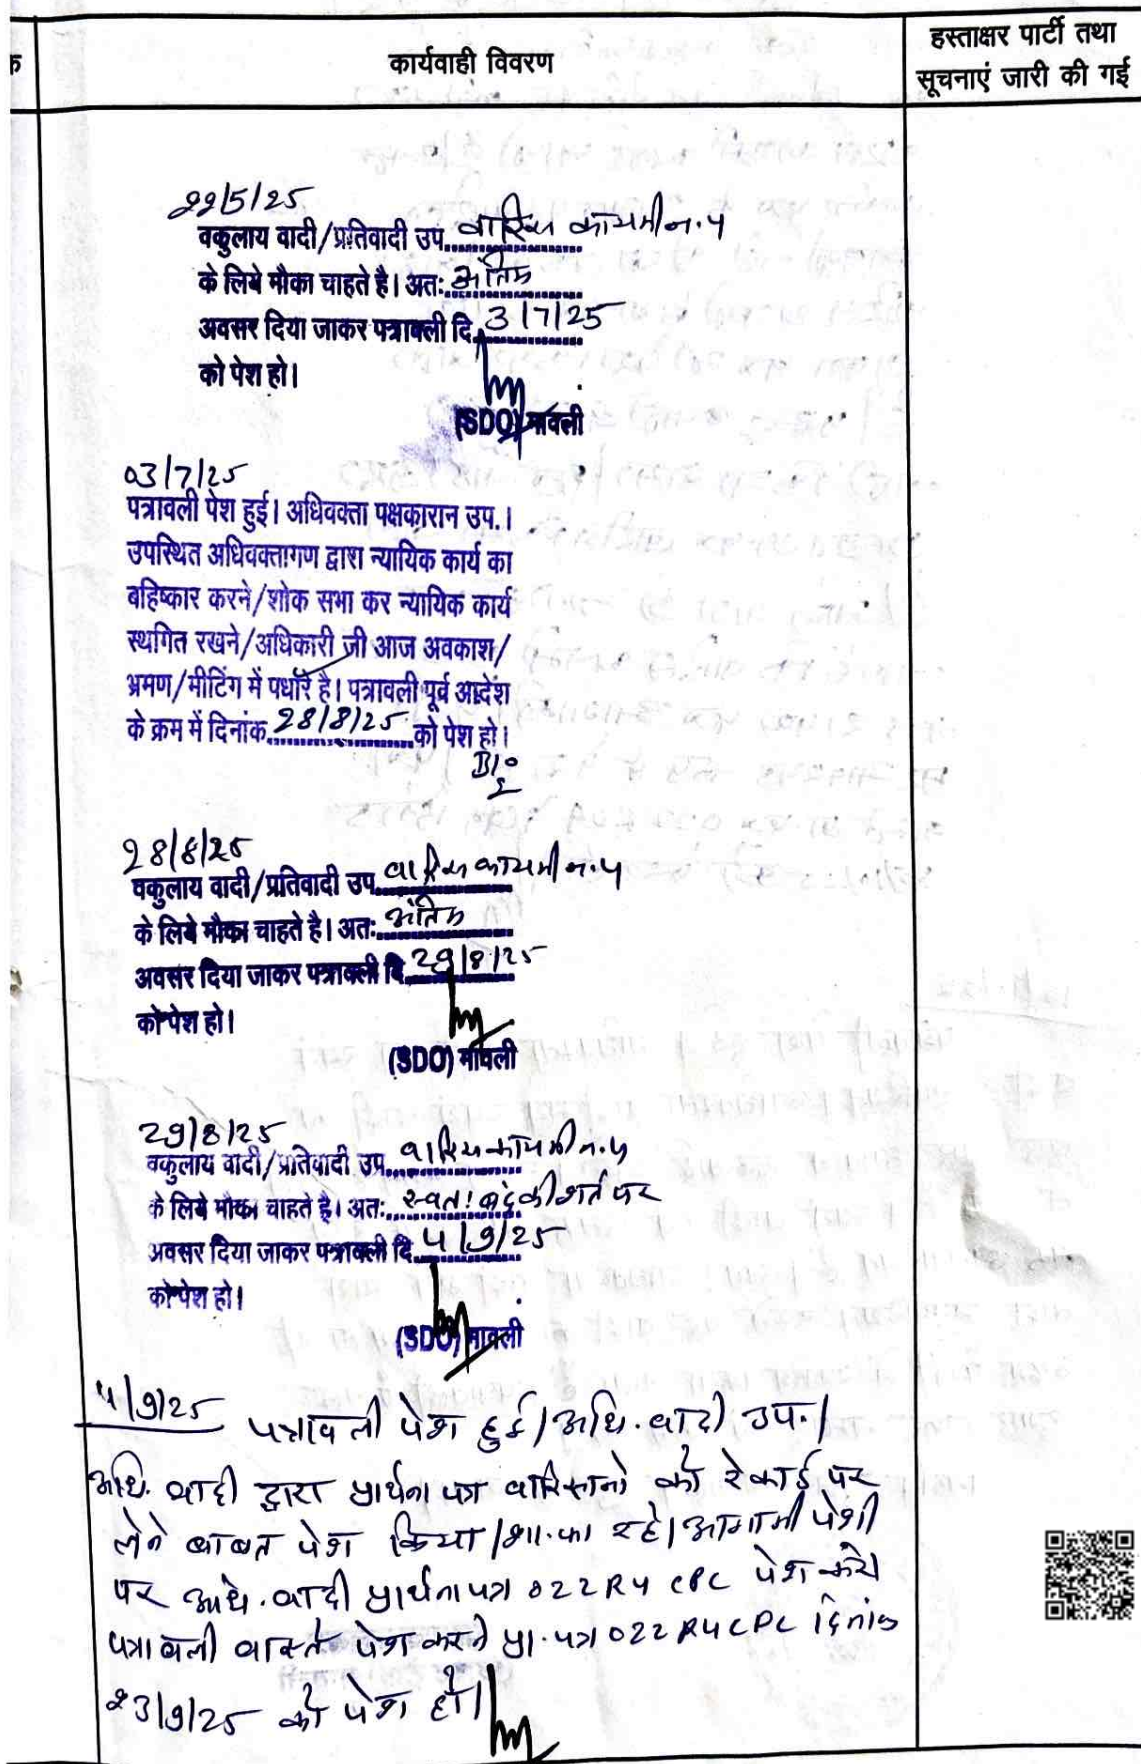 क
कार्यवाही विवरण
हस्ताक्षर पार्टी तथा
सूचनाएं जारी की गई
22/5/25
वकुलाय वादी/प्रतिवादी उप. वारिस कायमी न.प
के लिये मौका चाहते है। अतः अंतिम
अवसर दिया जाकर पत्रावली दि. 3/7/25
को पेश हो।
(SDO) मावली
03/7/25
पत्रावली पेश हुई। अधिवक्ता पक्षकारान उप.।
उपस्थित अधिवक्तागण द्वारा न्यायिक कार्य का
बहिष्कार करने/शोक सभा कर न्यायिक कार्य
स्थगित रखने/अधिकारी जी आज अवकाश/
भ्रमण/मीटिंग में पधारे है। पत्रावली पूर्व आदेश
के क्रम में दिनांक 28/8/25 को पेश हो।
28/8/25
वकुलाय वादी/प्रतिवादी उप. वारिस कायमी न.प
के लिये मौका चाहते है। अतः अंतिम
अवसर दिया जाकर पत्रावली दि. 29/8/25
को पेश हो।
(SDO) मावली
29/8/25
वकुलाय वादी/प्रतिवादी उप. वारिस कायमी न.प
के लिये मौका चाहते है। अतः स्वतः बंद की शर्त पर
अवसर दिया जाकर पत्रावली दि. 4/9/25
को पेश हो।
(SDO) मावली
4/9/25 पत्रावली पेश हुई। अधि. वादी उप.।
अधि. वादी द्वारा प्रार्थना पत्र वारिसानो को रेकार्ड पर
लेने बाबत पेश किया। शा.फा रहे। आगामी पेशी
पर अधि. वादी प्रार्थना पत्र 022 R4 CPC पेश करे।
पत्रावली वास्ते पेश करने प्रा. पत्र 022 R4 CPC दिनांक
23/9/25 को पेश हो।